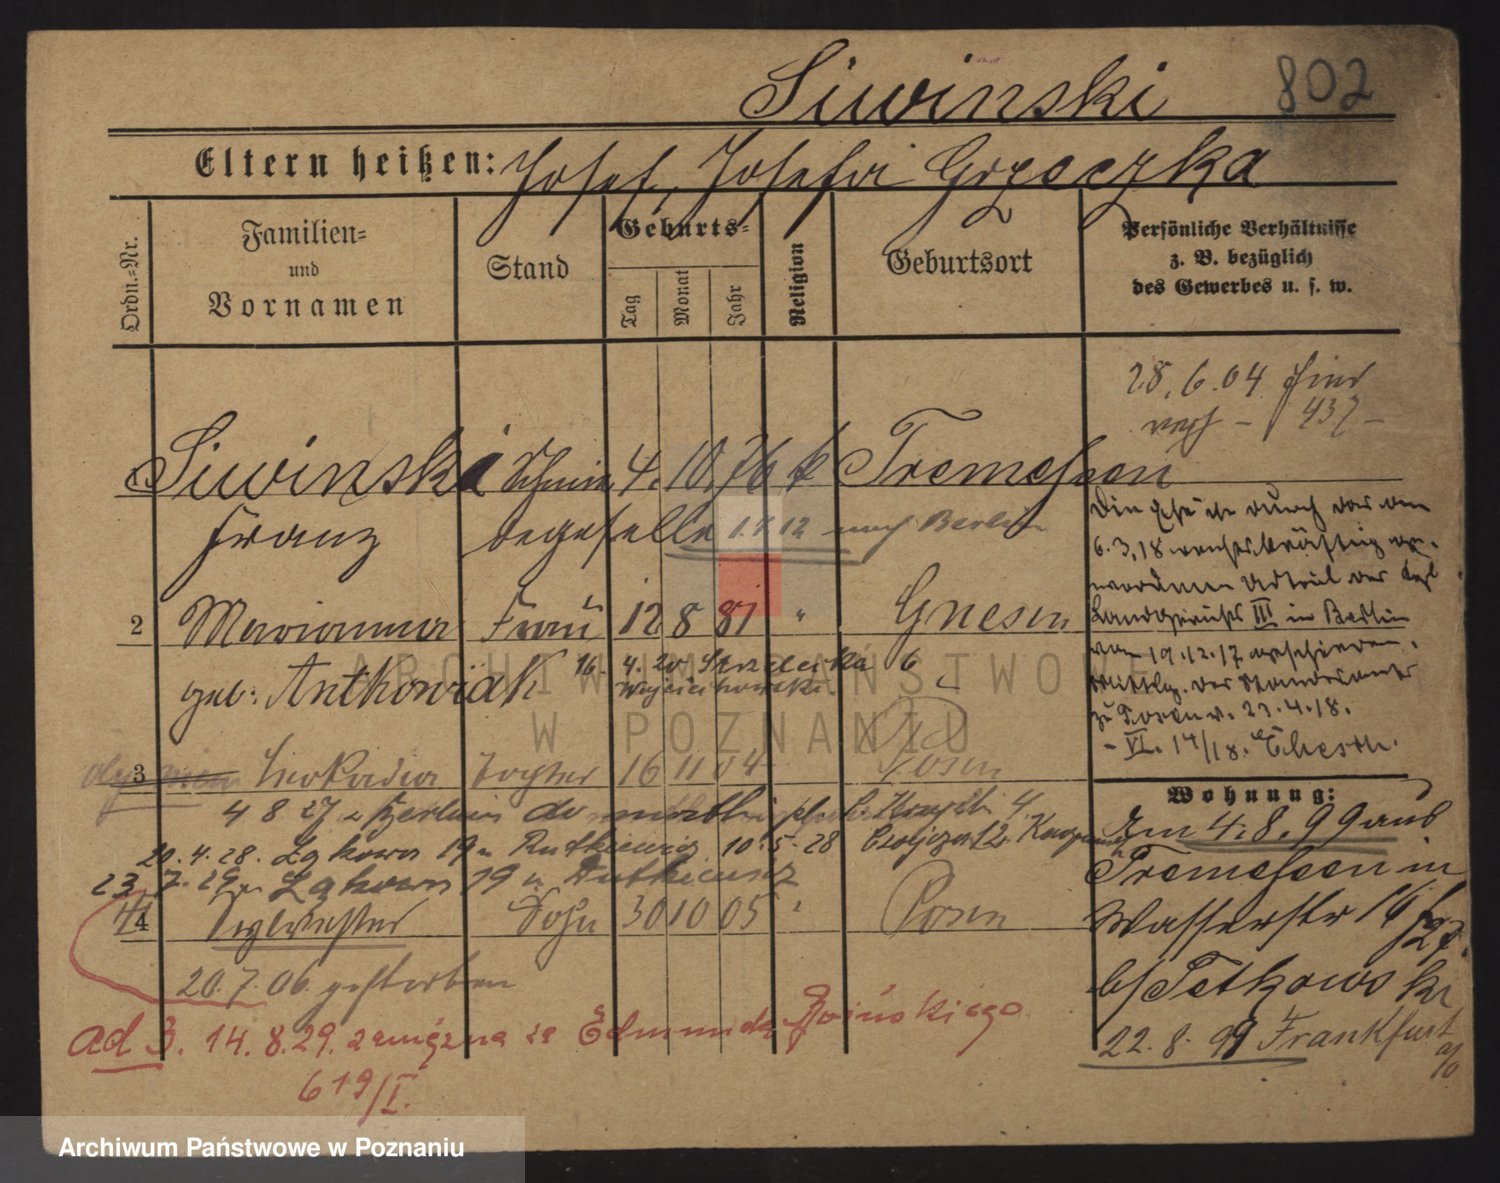 Siwinski 802
Eltern heißen: Josef, Josefa Grzeczka
Ordn.-Nr.
Familien-
und
Vornamen
Stand
Geburts-
Tag
Monat
Jahr
Religion
Geburtsort
Persönliche Verhältnisse
z. B. bezüglich
des Gewerbes u. s. w.
28.6.04 hier
437
Siwinski Schmie 4. 10. 76 k Tremessen
Franz degeselle 1.4.12 nach Berlin
Die Ehe ist durch das am
6.3.18 rechtskräftig ge-
wordene Urteil des Kgl
Landgerichts III in Berlin
vom 19.12.17 geschieden.
Mittlg. des Standesamts
zu Posen v. 23.4.18.
- VI. 14/18. Ehesch.
2 Marianna Frau 12 8 81 " Gnesen
geb: Antkowiak 16. 4. 20 Strzelecka 6
Wojciechowski
3 Leokadia Tochter 16 11 04 Posen
4 8 27
20.4.28. Łąkowa 19 u Rutkiewicz 10.5.28
23.7.29 u Łąkowa 19 u Rutkiewicz
4 Sylvester Sohn 30 10 05 " Posen
20.7.06 gestorben
ad 3. 14.8.29. zamężna za Edmunda
619/I.
Wohnung:
Am 4.8.99 aus
Tremessen in
Wasserstr 14
b/Petkowski
22.8.99 Frankfurt
a/O
ARCHIWUM PAŃSTWOWE
W POZNANIU
Archiwum Państwowe w Poznaniu